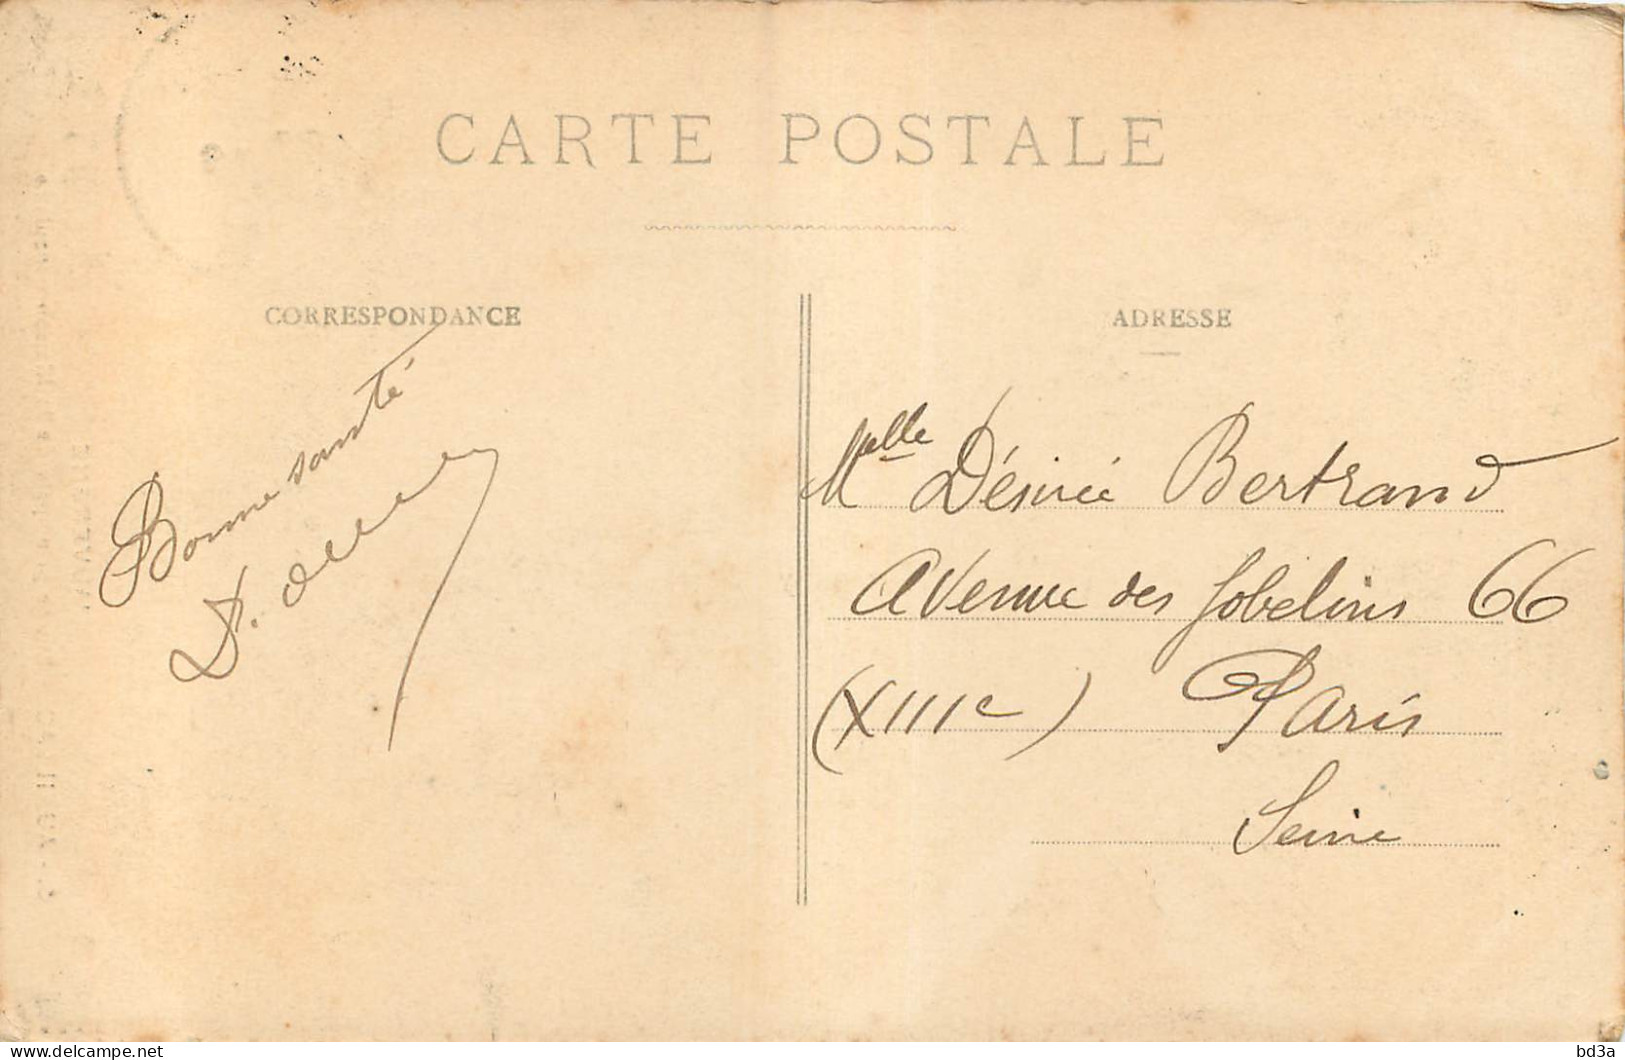 CARTE POSTALE
CORRESPONDANCE
Bonne santé
D.
ADRESSE
Melle Désirée Bertrand
Avenue des Gobelins 66
(XIIIe) Paris
Seine
www.delcampe.net
bd3a